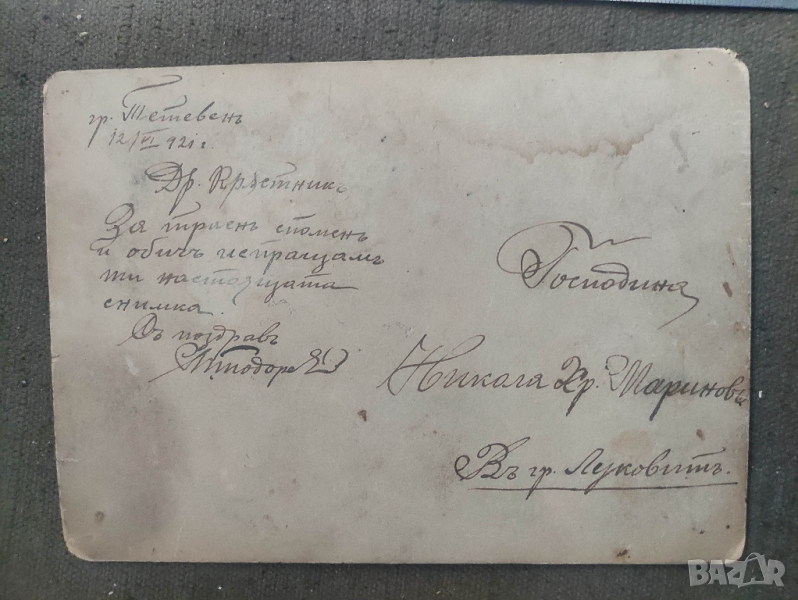 гр. Тетевенъ
12/VI 921 г.
Др. Кръстникъ
За траенъ споменъ
и обичъ испращамъ
ти настоящата
снимка.
Съ поздравъ
Господина
Никола Хр. Мариновъ
Въ гр. Луковитъ.
BAZAR